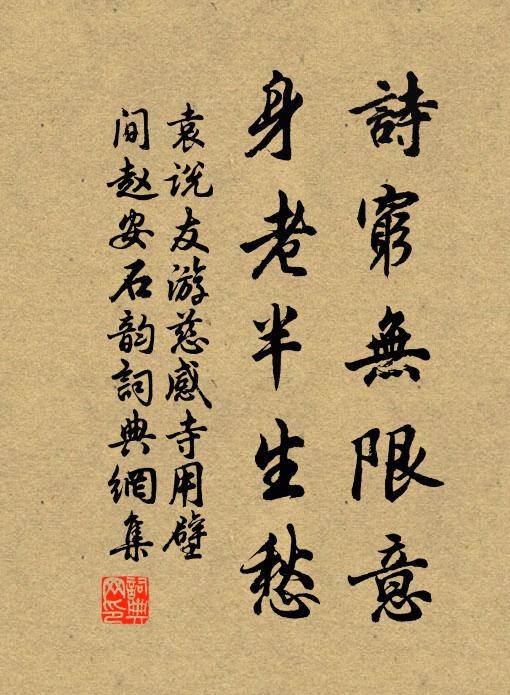 詩窮無限意
身老半生愁
袁说友游慈感寺用壁
间赵安石韵詞典網集
詞典网印